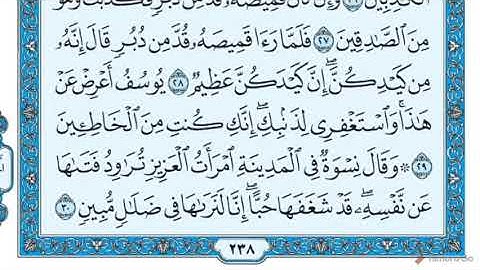 ٱلْكَٰذِبِينَ ٢٦ وَإِن كَانَ قَمِيصُهُۥ قُدَّ مِن دُبُرٍ فَكَذَبَتْ وَهُوَ
مِنَ ٱلصَّٰدِقِينَ ٢٧ فَلَمَّا رَءَا قَمِيصَهُۥ قُدَّ مِن دُبُرٍ قَالَ إِنَّهُۥ
مِن كَيْدِكُنَّ ۖ إِنَّ كَيْدَكُنَّ عَظِيمٌ ٢٨ يُوسُفُ أَعْرِضْ عَنْ
هَٰذَا ۚ وَٱسْتَغْفِرِى لِذَنۢبِكِ ۖ إِنَّكِ كُنتِ مِنَ ٱلْخَاطِـِٔينَ
٢٩ ۞ وَقَالَ نِسْوَةٌ فِى ٱلْمَدِينَةِ ٱمْرَأَتُ ٱلْعَزِيزِ تُرَٰوِدُ فَتَىٰهَا
عَن نَّفْسِهِۦ ۖ قَدْ شَغَفَهَا حُبًّا ۖ إِنَّا لَنَرَىٰهَا فِى ضَلَٰلٍ مُّبِينٍ ٣٠
٢٣٨